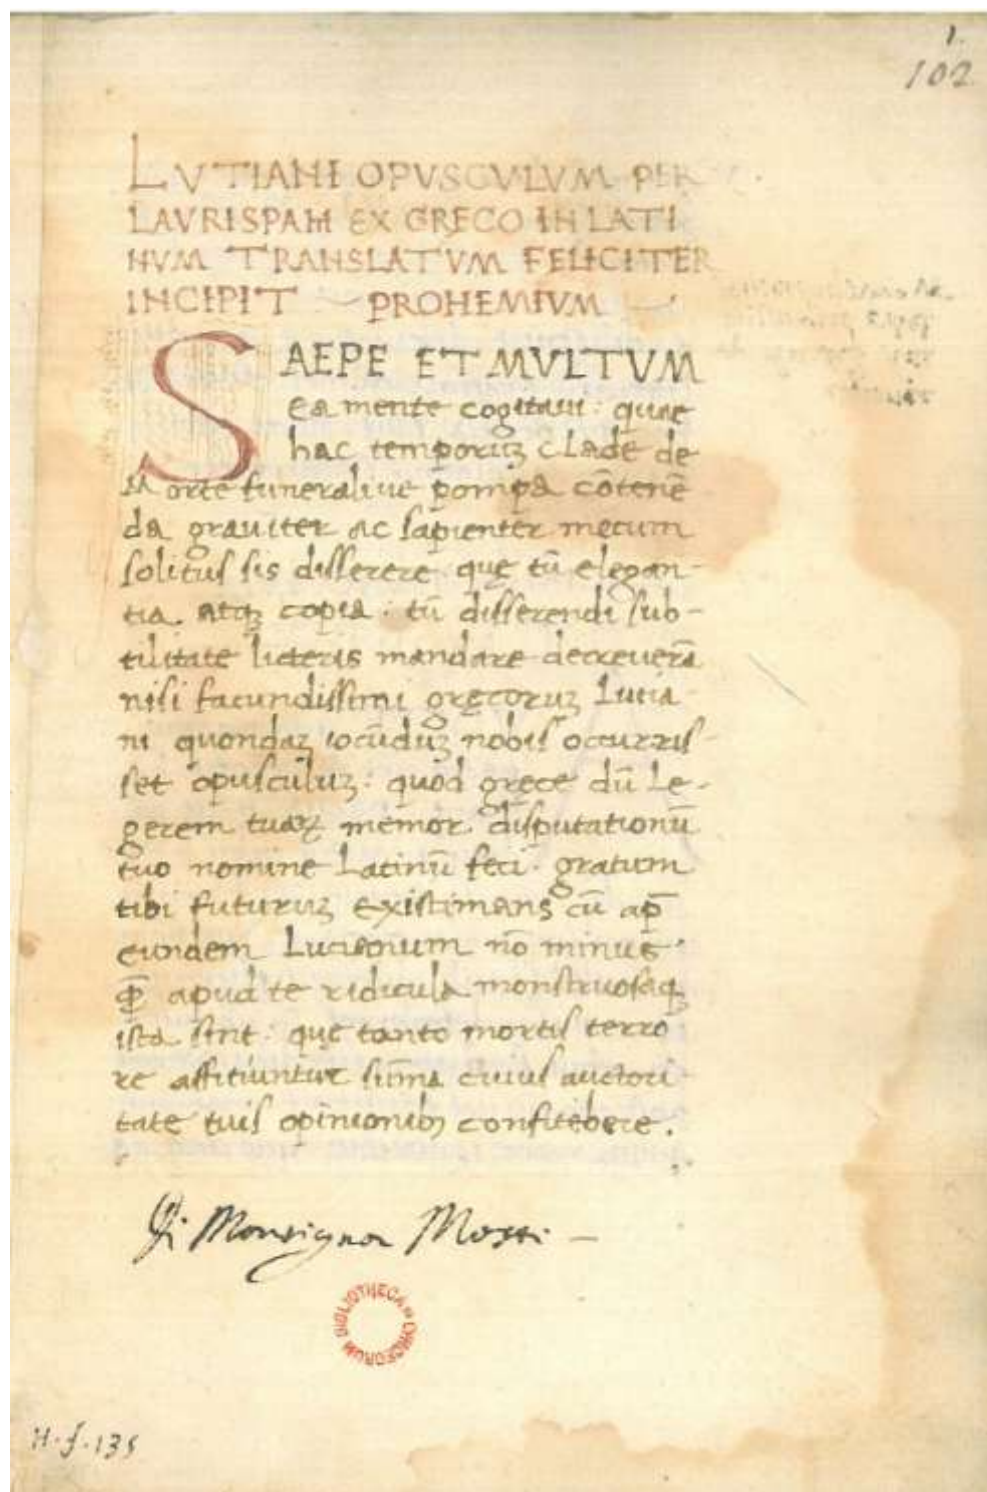 1.
102
LVTIANI OPVSCVLVM PER
LAVRISPAM EX GRECO IN LATI
NVM TRANSLATVM FELICITER
INCIPIT PROHEMIVM
SAEPE ET MVLTVM
ea mente cogitaui: quae
hac temporuꝫ clade de
Morte funeraliue pompa cōtenē
da grauiter ac sapienter mecum
solitus sis disserere. quę tū elegan-
tia atqꝫ copia: tū disserendi sub-
tilitate licteris mandare decreuerā
nisi facundissimi gręcoruꝫ Lucia
ni quondaꝫ iocūduꝫ nobis occurris-
set opusculuꝫ: quod gręce dū le-
gerem tuaꝝ memor disputationū
tuo nomine Latinū feci. gratum
tibi futuruꝫ existimans cū ap̄
eundem Lucianum nō minus
apud te ridicula monstruosaqꝫ
ista sint: quę tanto mortis terro
re affitiuntur sūma cuius auctori-
tate tuis opinionibꝫ confitebere.
Di Monsignor Massi
BIBLIOTHECA LYNCEORUM
H.f.135